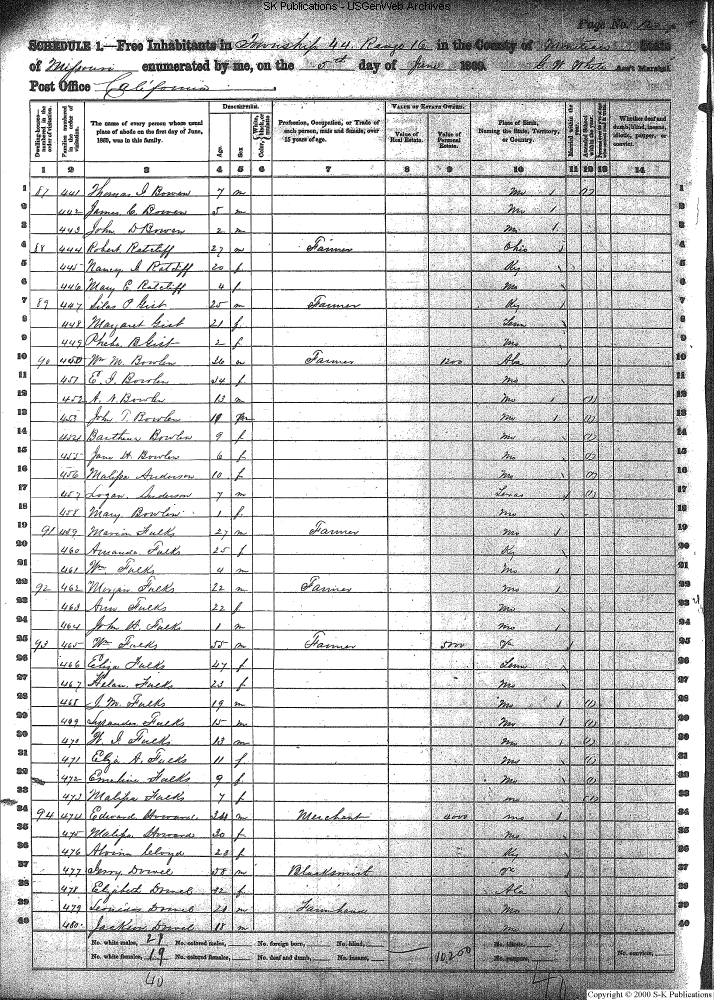 SK Publications - USGenWeb Archives
Page No.
SCHEDULE 1.—Free Inhabitants in Township 44 Range 16 in the County of State
of Missouri enumerated by me, on the 5th day of June 1860. Ass't Marshal.
Post Office California
Dwelling-houses—numbered in the order of visitation.
Families numbered in the order of visitation.
The name of every person whose usual place of abode on the first day of June, 1860, was in this family.
DESCRIPTION.
Age.
Sex
Color, White, black, or mulatto
Profession, Occupation, or Trade of each person, male and female, over 15 years of age.
VALUE OF ESTATE OWNED.
Value of Real Estate.
Value of Personal Estate.
Place of Birth, Naming the State, Territory, or Country.
Married within the year.
Attended School within the year.
Whether deaf and dumb, blind, insane, idiotic, pauper, or convict.
1 2 3 4 5 6 7 8 9 10 11 12 13 14
1 87 441 Thomas J Bowen 7 m Mo 1 (1) 1
2 442 James C. Bowen 5 m Mo 1 2
3 443 John D Bowen 2 m Mo 1 3
4 88 444 Robert Ratcliff 27 m Farmer Ohio 4
5 445 Nancy J Ratcliff 20 f Ky 5
6 446 Mary E Ratcliff 4 f Mo 6
7 89 447 Silas P Gist 25 m Farmer Ky 7
8 448 Margaret Gist 21 f Tenn 8
9 449 B Gist 2 f Mo 9
10 90 450 Wm M. Bowlen m Farmer 1200 Ala 10
11 451 E. J. Bowlen 34 f Mo 11
12 452 A. Bowlen 13 m Mo 1 (1) 12
13 453 John T. Bowlen m Mo 1 (1) 13
14 454 Bowlen 9 f Mo (1) 14
15 455 Jane H. Bowlen 6 f Mo (1) 15
16 456 Malissa Anderson 10 f Mo (1) 16
17 457 Logan Anderson 7 m Texas (1) 17
18 458 Mary Bowlen 1 f Mo 18
19 91 459 Marion Fulks 27 m Farmer Mo 19
20 460 Amanda Fulks 25 f Ky 20
21 461 Wm Fulks 4 m Mo 21
22 92 462 Morgan Fulks 22 m Farmer Mo 22
23 463 Ann Fulks 22 f Mo 23
24 464 John H. Fulks 1 m Mo 24
25 93 465 Wm Fulks 55 m Farmer 5000 Va 25
26 466 Eliza Fulks 47 f Tenn 26
27 467 Helan Fulks 23 f Mo 27
28 468 J. M. Fulks 19 m Mo 1 (1) 28
29 469 Fulks 15 m Mo 1 (1) 29
30 470 W. J. Fulks 13 m Mo 1 (1) 30
31 471 Eliz A. Fulks 11 f Mo (1) 31
32 472 Emeline Fulks 9 f Mo (1) 32
33 473 Malissa Fulks 7 f Mo (1) 33
34 94 474 Edward Howard m Merchant 4000 Mo 1 34
35 475 Malissa Howard 20 f Mo 35
36 476 20 f Ky 36
37 477 Jerry Dowel 58 m Blacksmith Va 37
38 478 Elizabeth Dowel f Ala 38
39 479 Leonidas Dowel 21 m Farmhand Mo 39
40 480 Jackson Dowel 18 m Mo 40
No. white males, 21 No. colored males, No. foreign born, No. blind, No. idiotic, No. convicts,
No. white females, 19 No. colored females, No. deaf and dumb, No. insane, 10,200 No. paupers,
40
Copyright © 2000 S-K Publications